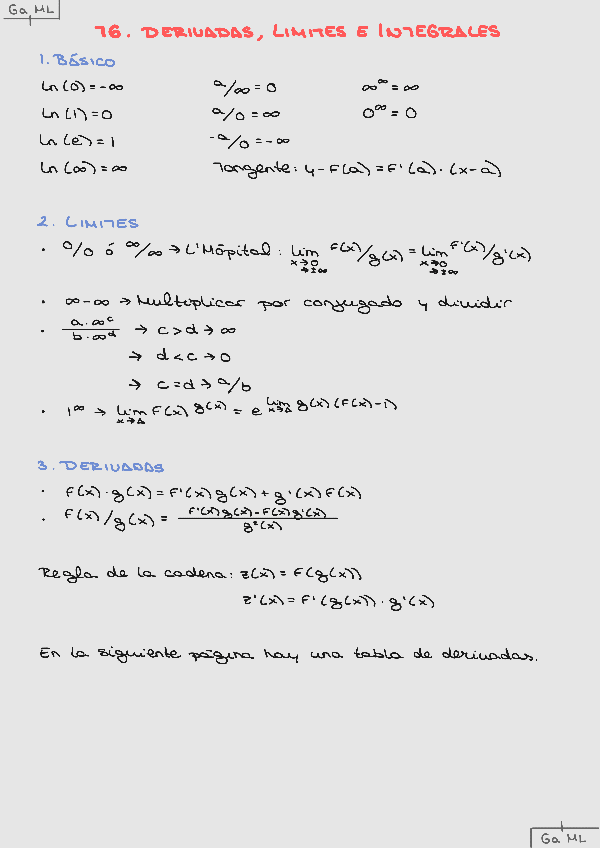 Ga ML
T6. DERIVADAS, LIMITES E INTEGRALES
1. BÁSICO
Ln(0)=-∞ a/∞=0 ∞^∞=∞
Ln(1)=0 a/0=∞ 0^∞=0
Ln(e)=1 -a/0=-∞
Ln(∞)=∞ Tangente: y-F(a)=F'(a)·(x-a)
2. LIMITES
· 0/0 ó ∞/∞ → L'Hôpital: lim x→0 →±∞ F(x)/g(x) = lim x→0 →±∞ F'(x)/g'(x)
· ∞-∞ → Multiplicar por conjugado y dividir
· a·∞^c / b·∞^d → c>d → ∞
→ d<c → 0
→ c=d → a/b
· 1^∞ → lim x→Δ F(x)^g(x) = e^lim x→Δ g(x)(F(x)-1)
3. DERIVADAS
· F(x)·g(x)=F'(x)g(x)+g'(x)F(x)
· F(x)/g(x) = F'(x)g(x)-F(x)g'(x) / g²(x)
Regla de la cadena: z(x)=F(g(x))
z'(x)=F'(g(x))·g'(x)
En la siguiente página hay una tabla de derivadas.
Ga ML